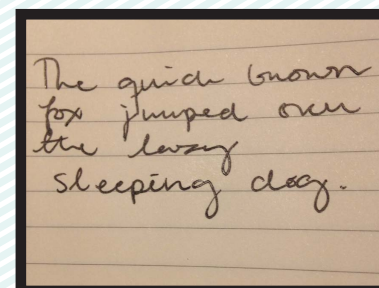 The quick brown
fox jumped over
the lazy
sleeping dog.